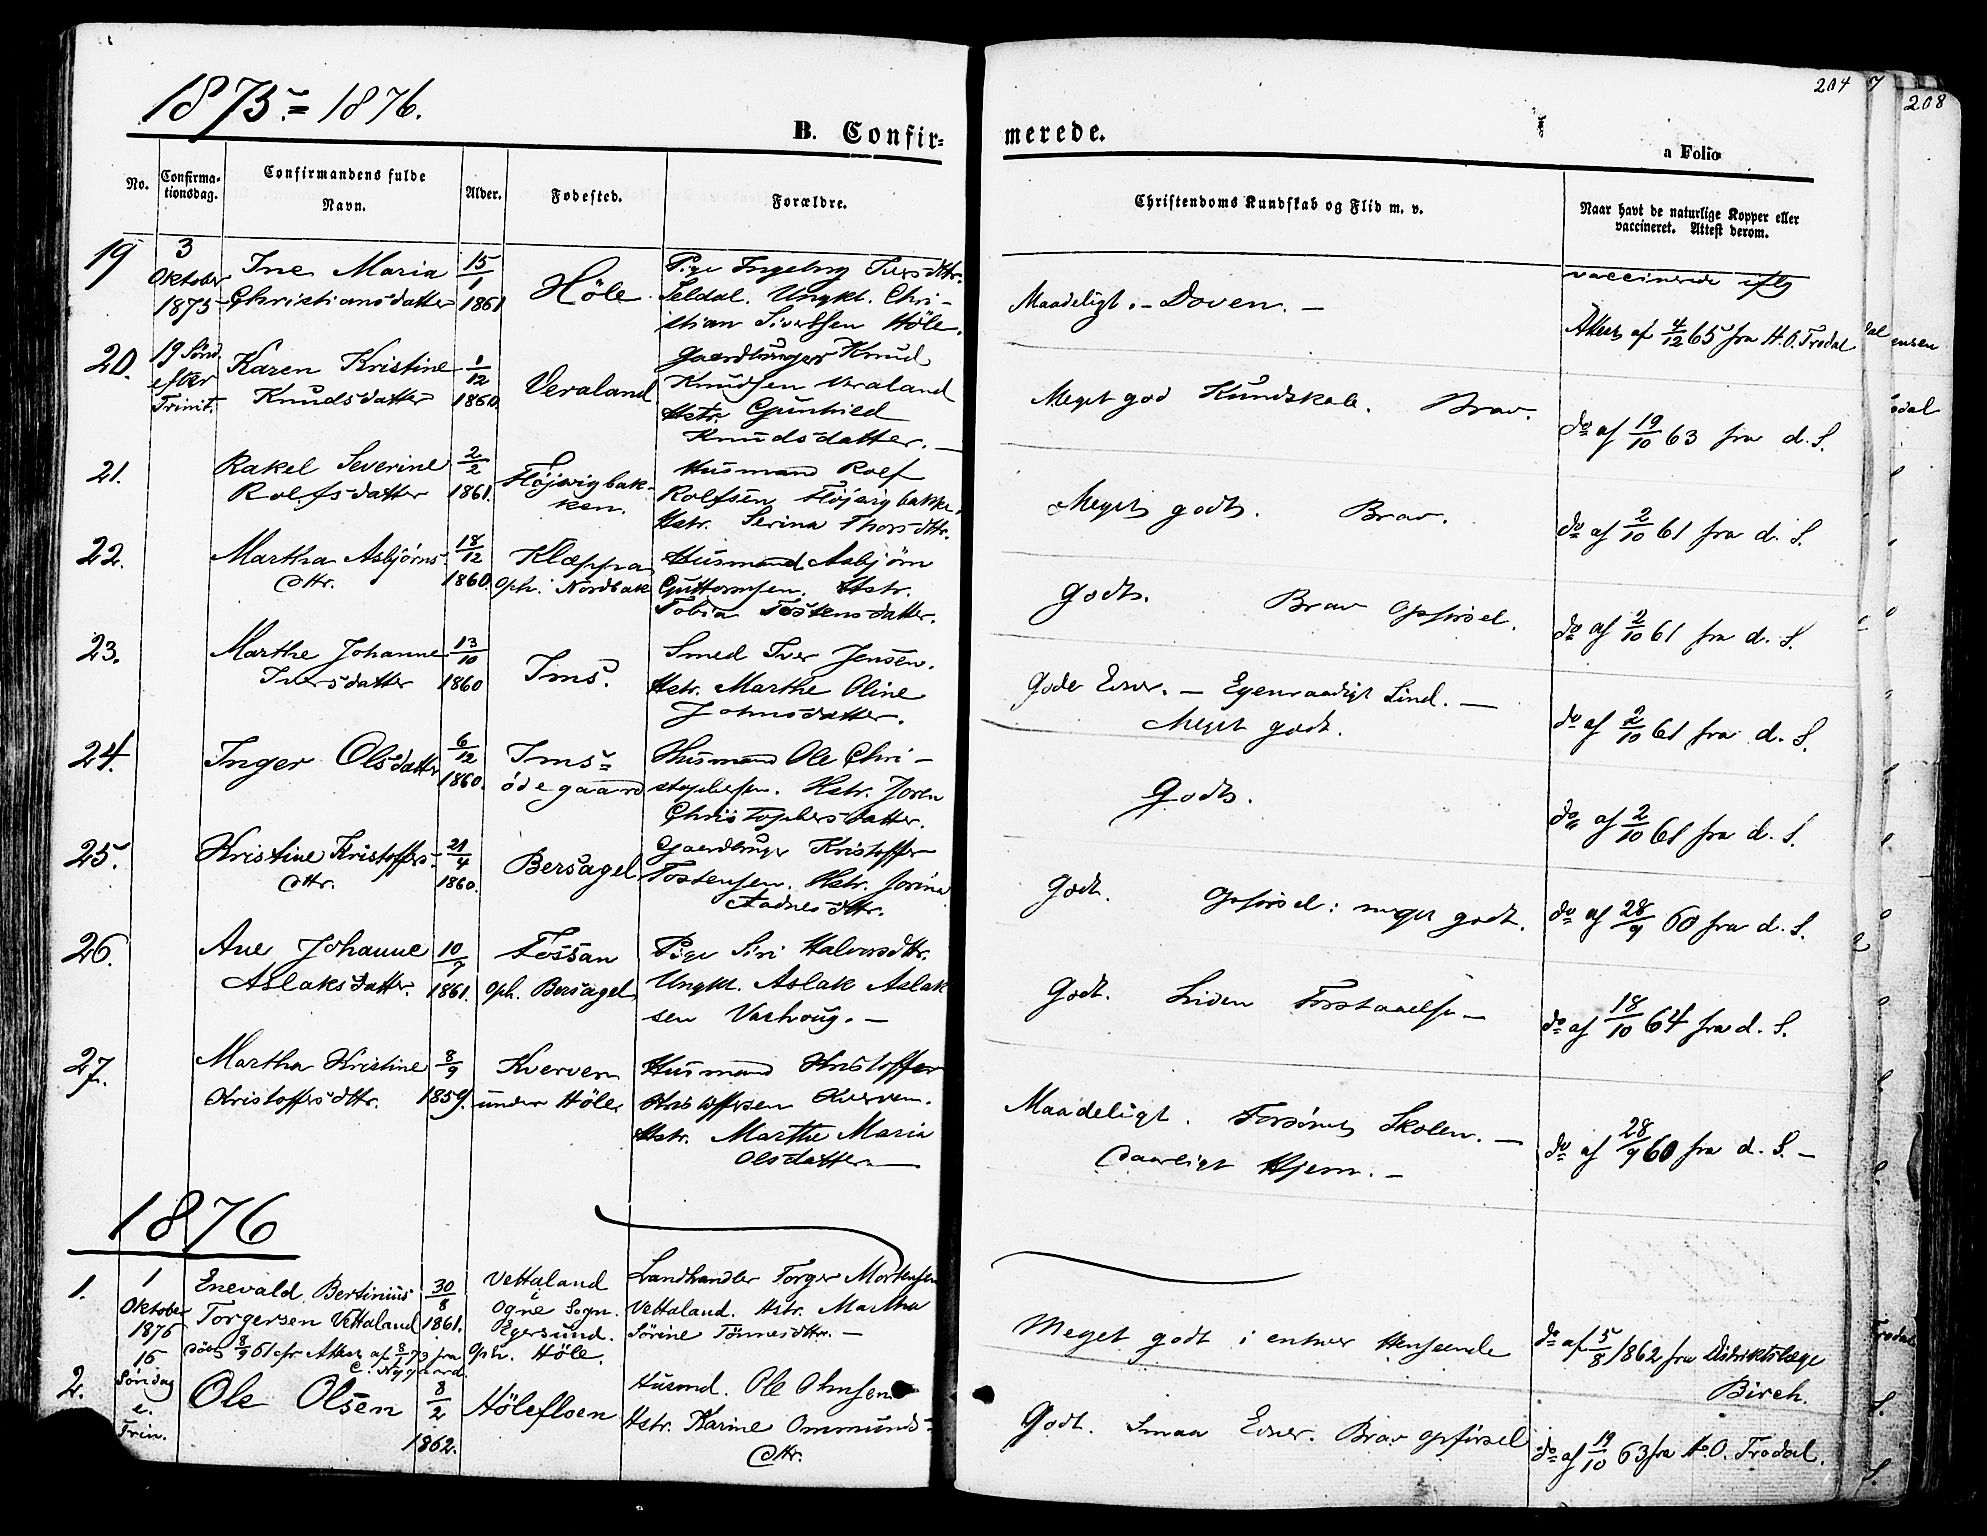 1875 = 1876.
204
7
208
B. Confir-
merede.
a Folio
No.
Confirma-
tionsdag.
Confirmandens fulde
Navn.
Alder.
Fødested.
Forældre.
Christendoms Kundskab og Flid m. v.
Naar havt de naturlige Kopper eller
vaccineret. Attest derom.
19
3
Oktober
1875
Ine Maria
Christiansdatter
15/1
1861
Höle.
Pige Ingebrg Iversdttr.
Seldal. Ungkl. Chri-
stian Sivertsen Höle.
Maadeligt. - Doven. -
vaccinerede iflg
Attest af 4/12 65 fra H. O. Trodal
20.
19 Sönd.
efter
Trinit.
Karen Kristine
Knudsdatter
1/12
1860.
Veraland
Gaardbruger Knud
Knudsen Veraland
Hstr. Gunhild
Knudsdatter. -
Meget god Kundskab. Brav.
do af 19/10 63 fra d. S.
21.
Rakel Severine
Rolfsdatter
2/2
1861.
Höjvigbak-
ken.
Husmand Rolf
Rolfsen Höjvigbakke.
Hstr. Serina Thorsdttr.
Meget godt. Brav.
do af 2/10 61 fra d. S.
22.
Martha Asbjørns-
dttr.
18/12
1860.
Klæppa
oph. i Nordbak
Husmand Asbjörn
Guttormsen. Hstr.
Tobia Tostensdatter.
Godt. Brav Opförsel.
do af 2/10 61 fra d. S.
23.
Marthe Johanne
Iversdatter
13/10
1860
Ims.
Smed Iver Jensen.
Hstr. Marthe Oline
Johnsdatter.
Gode Evner. - Egenraadigt Sind. -
Meget godt.
do af 2/10 61 fra d. S.
24.
Inger Olsdatter
6/12
1860.
Ims=
ödegaard
Husmand Ole Chri-
stophersen. Hstr. Joren
Christophersdatter.
Godt.
do af 2/10 61 fra d. S.
25.
Kristine Kristoffers-
dttr.
21/4
1860.
Bersagel
Gaardbruger Kristoffer
Tostensen. Hstr. Jorina
Aadnesdttr.
Godt. Opförsel: meget godt.
do af 28/9 60 fra d. S.
26.
Ane Johanne
Aslaksdatter.
10/7
1861.
Fossan
oph. Bersagel
Pige Siri Halvorsdttr.
Ungkl. Aslak Aslak
sen Vashoug. -
Godt. Liden Forstaaelse -
do af 18/10 64 fra d. S.
27.
Martha Kristine
Kristoffersdttr.
8/9
1859.
Kverven
under Höle
Husmand Kristoffer
Kristoffersen Kverven.
Hstr. Marthe Maria
Olsdatter -
Maadeligt. Forsömt Skolen. -
Daarligt Hjem. -
do af 28/9 60 fra d. S. -
1876
1.
1
Oktober
1876
16
Enevald Bertinius
Torgersen Vettaland
döbt 8/9 61 efr Attest af 8/7 73 fra
C. Nygaard.
30/8
1861.
Vettaland
i
Ogne Sogn.
Egersund.
oph. Höle.
Landhandler Torger Mortensen
Vettaland. Hstr. Martha
Sörine Tönnesdttr. -
Meget godt i enhver Henseende
do af 5/8 1862 fra Distriktslæge
Birch.
2.
Söndag
e.
Trin.
Ole Olsen
8/2
1862.
Hölefloen
Husmd. Ole Olsen
Hstr. Karine Ommunds-
dttr.
Godt. Smaa Evner. Brav opförsel
do af 19/10 63 fra H. O. Trodal.